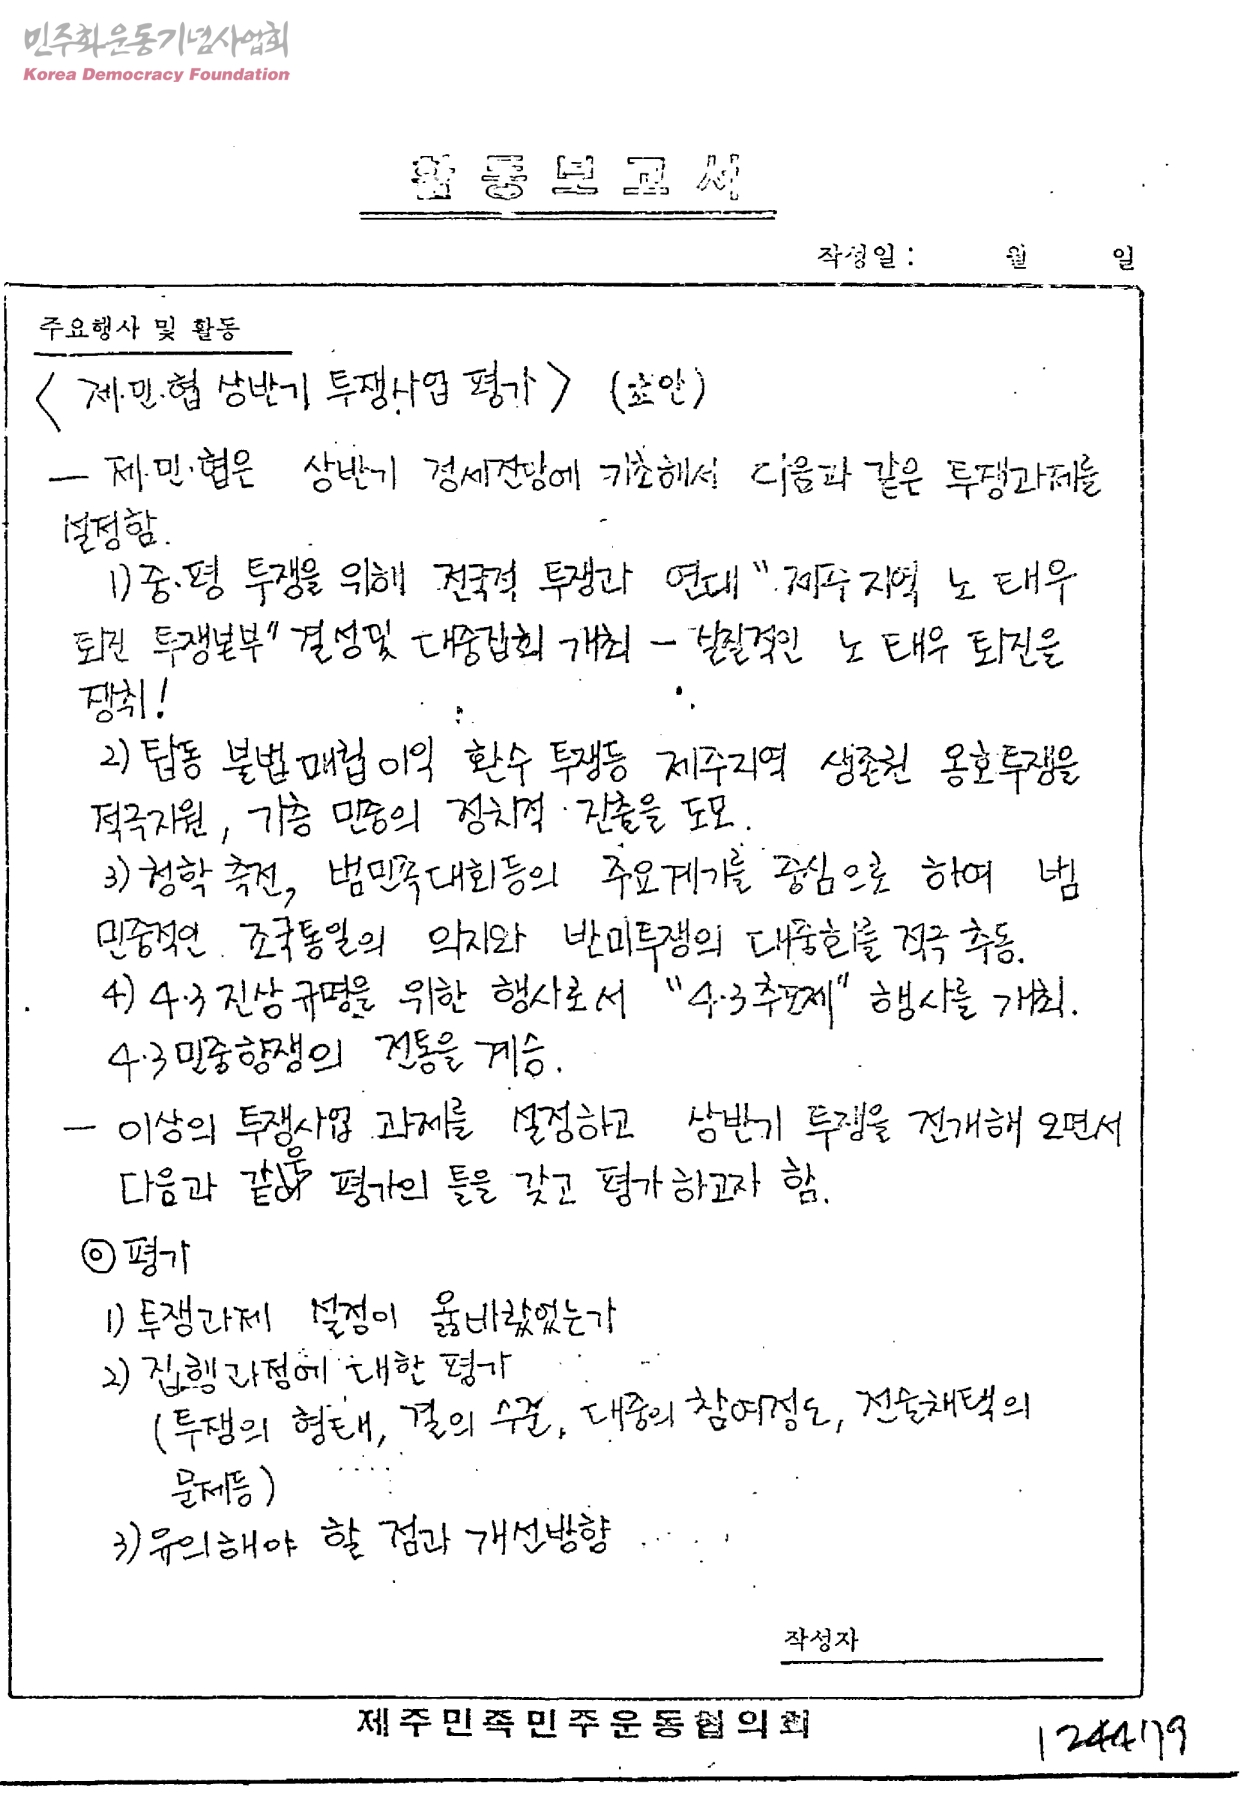 민주화운동기념사업회
Korea Democracy Foundation
활동보고서
작성일 : 월 일
주요행사 및 활동
< 제.민.협 상반기 투쟁사업 평가 > (초안)
― 제.민.협은 상반기 정세전망에 기초해서 다음과 같은 투쟁과제를
설정함.
1) 중.평 투쟁을 위해 전국적 투쟁과 연대 "제주지역 노태우
퇴진 투쟁본부" 결성및 대중집회 개최 ― 실질적인 노태우 퇴진을
쟁취!
2) 탑동 불법매립이익 환수 투쟁등 제주지역 생존권 옹호투쟁을
적극지원, 기층 민중의 정치적 진출을 도모.
3) 청학축전, 범민족대회등의 주요계기를 중심으로 하여 범
민중적인 조국통일의 의지와 반미투쟁의 대중화를 적극 추동.
4) 4.3진상규명을 위한 행사로서 "4.3추모제" 행사를 개최.
4.3민중항쟁의 전통을 계승.
― 이상의 투쟁사업 과제를 설정하고 상반기 투쟁을 전개해 오면서
다음과 같은 평가의 틀을 갖고 평가하고자 함.
◎ 평가
1) 투쟁과제 설정이 옳바랐었는가
2) 집행과정에 대한 평가
(투쟁의 형태, 결의 수준, 대중의 참여정도, 전술채택의
문제등)
3) 유의해야 할 점과 개선방향
작성자
제주민족민주운동협의회
124479